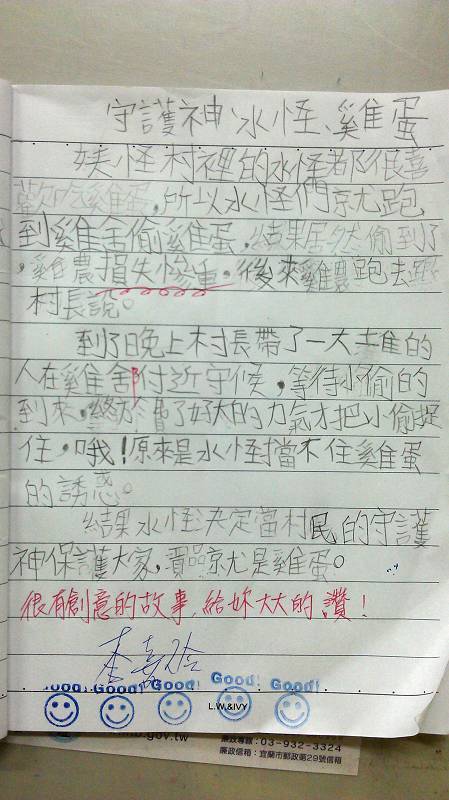 守護神、水怪、雞蛋
妖怪村裡的水怪都很喜
歡吃雞蛋,所以水怪們就跑
到雞舍偷雞蛋,結果居然偷到了
,雞農損失慘重,後來雞農跑去跟
村長說。
到了晚上村長帶了一大堆的
人在雞舍附近守候,等待小偷的
到來,終於費了好大的力氣才把小偷捉
住,哦!原來是水怪擋不住雞蛋
的誘惑。
結果水怪決定當村民的守護
神保護大家,賣品就是雞蛋。
很有創意的故事,給妳大大的讚!
Good! Good! Good! Good! Good!
L.W.&IVY
.gov.tw
廉政專線:03-932-3324
廉政信箱:宜蘭市郵政第29號信箱